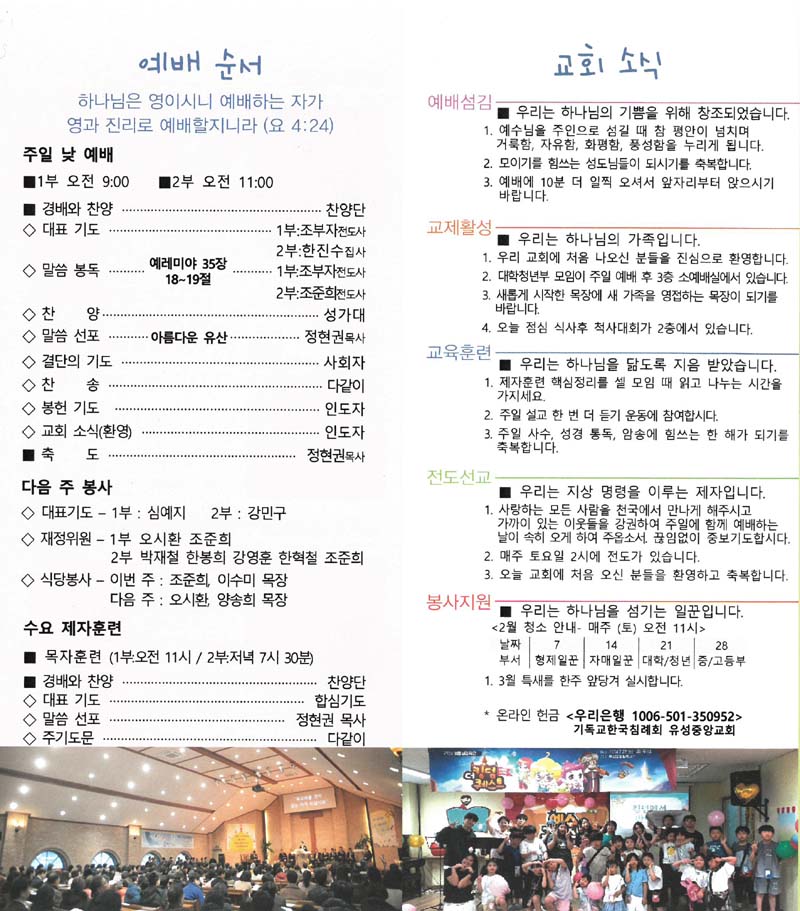 예배 순서
하나님은 영이시니 예배하는 자가
영과 진리로 예배할지니라 (요 4:24)
주일 낮 예배
■1부 오전 9:00 ■2부 오전 11:00
■ 경배와 찬양 찬양단
◇ 대표 기도 1부:조부자전도사
2부:한진수집사
◇ 말씀 봉독 예레미야 35장 18~19절 1부:조부자전도사
2부:조준희전도사
◇ 찬 양 성가대
◇ 말씀 선포 아름다운 유산 정현권목사
◇ 결단의 기도 사회자
◇ 찬 송 다같이
◇ 봉헌 기도 인도자
◇ 교회 소식(환영) 인도자
■ 축 도 정현권목사
다음 주 봉사
◇ 대표기도 – 1부 : 심예지 2부 : 강민구
◇ 재정위원 – 1부 오시환 조준희
2부 박재철 한봉희 강영훈 한혁철 조준희
◇ 식당봉사 – 이번 주 : 조준희, 이수미 목장
다음 주 : 오시환, 양송희 목장
수요 제자훈련
■ 목자훈련 (1부:오전 11시 / 2부:저녁 7시 30분)
■ 경배와 찬양 찬양단
◇ 대표 기도 합심기도
◇ 말씀 선포 정현권 목사
◇ 주기도문 다같이
교회 소식
예배섬김
■ 우리는 하나님의 기쁨을 위해 창조되었습니다.
1. 예수님을 주인으로 섬길 때 참 평안이 넘치며
거룩함, 자유함, 화평함, 풍성함을 누리게 됩니다.
2. 모이기를 힘쓰는 성도님들이 되시기를 축복합니다.
3. 예배에 10분 더 일찍 오셔서 앞자리부터 앉으시기
바랍니다.
교제활성
■ 우리는 하나님의 가족입니다.
1. 우리 교회에 처음 나오신 분들을 진심으로 환영합니다.
2. 대학청년부 모임이 주일 예배 후 3층 소예배실에서 있습니다.
3. 새롭게 시작한 목장에 새 가족을 영접하는 목장이 되기를
바랍니다.
4. 오늘 점심 식사후 척사대회가 2층에서 있습니다.
교육훈련
■ 우리는 하나님을 닮도록 지음 받았습니다.
1. 제자훈련 핵심정리를 셀 모임 때 읽고 나누는 시간을
가지세요.
2. 주일 설교 한 번 더 듣기 운동에 참여합시다.
3. 주일 사수, 성경 통독, 암송에 힘쓰는 한 해가 되기를
축복합니다.
전도선교
■ 우리는 지상 명령을 이루는 제자입니다.
1. 사랑하는 모든 사람을 천국에서 만나게 해주시고
가까이 있는 이웃들을 강권하여 주일에 함께 예배하는
날이 속히 오게 하여 주옵소서. 끊임없이 중보기도합시다.
2. 매주 토요일 2시에 전도가 있습니다.
3. 오늘 교회에 처음 오신 분들을 환영하고 축복합니다.
봉사지원
■ 우리는 하나님을 섬기는 일꾼입니다.
<2월 청소 안내- 매주 (토) 오전 11시>
날짜 7 14 21 28
부서 형제일꾼 자매일꾼 대학/청년 중/고등부
1. 3월 특새를 한주 앞당겨 실시합니다.
* 온라인 헌금 <우리은행 1006-501-350952>
기독교한국침례회 유성중앙교회
더 킹덤 퀘스트